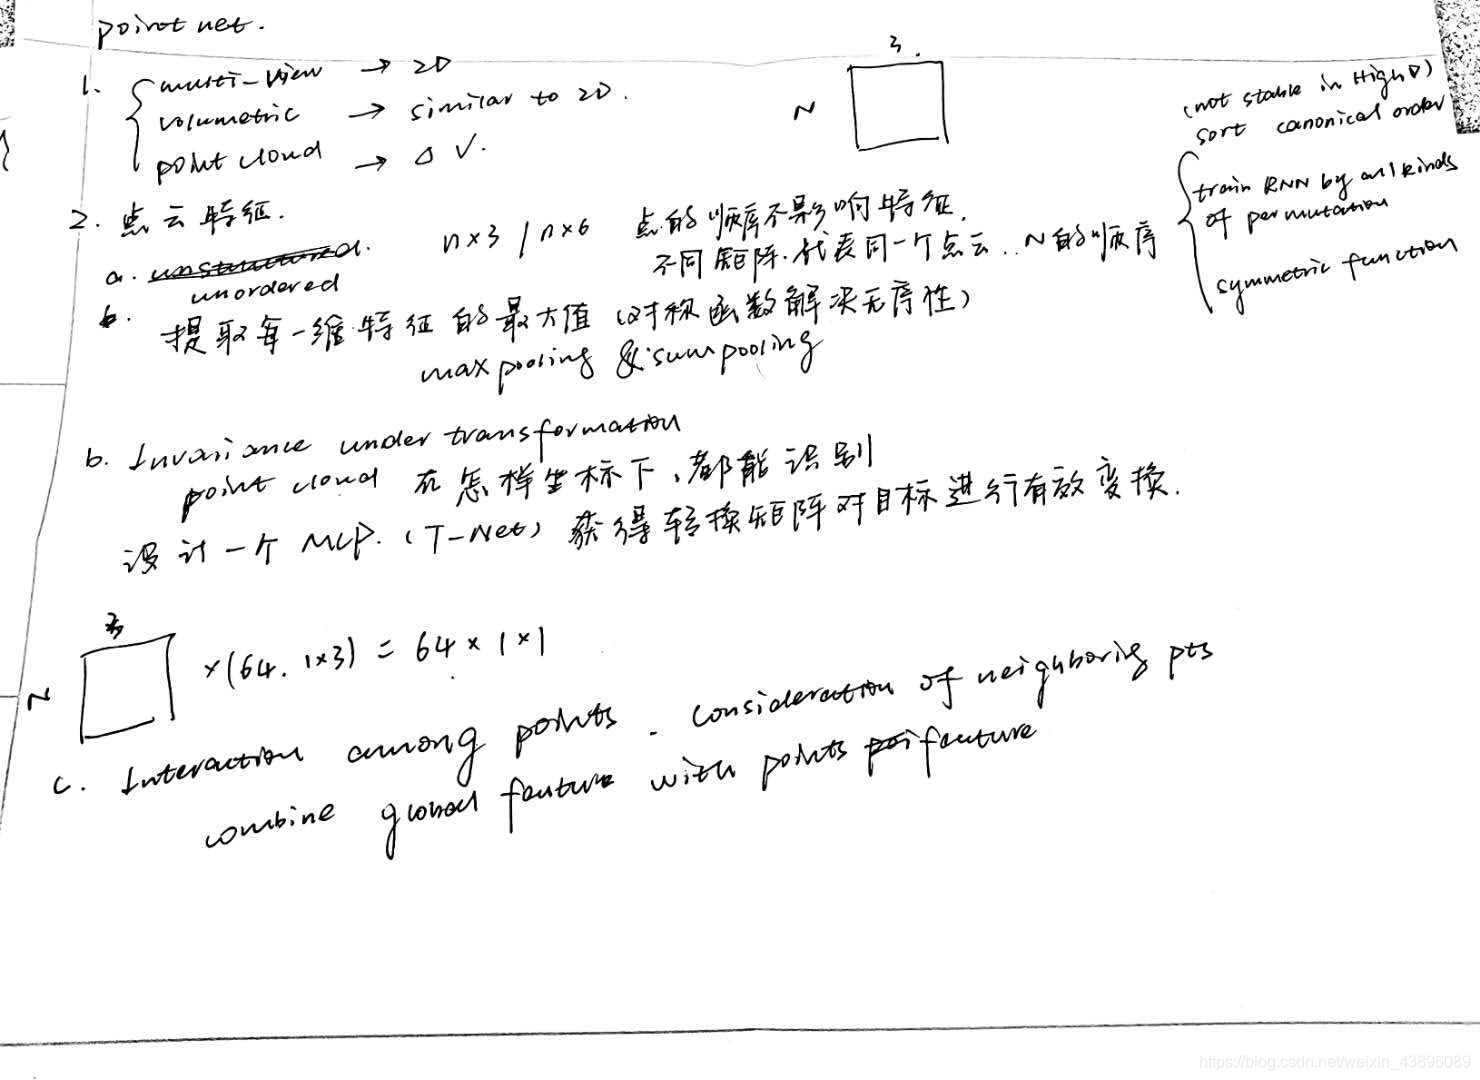 point net.
1. { multi-view → 2D
volumetric → similar to 2D.
point cloud → Δ V.
3.
N
(not stable in High D)
sort canonical order
train RNN by all kinds
of permutation
symmetric function
2. 点云特征.
a. unstructured.
unordered
n×3 / n×6 点的顺序不影响特征.
不同矩阵.代表同一个点云.. N的顺序
b. 提取每一维特征的最大值 (对称函数解决无序性)
max pooling & sum pooling
b. Invariance under transformation
point cloud 在怎样坐标下、都能识别
设计一个 MLP. (T-Net) 获得转换矩阵对目标进行有效变换.
3
N
×(64. 1×3) = 64 × 1 × 1
c. Interaction among points. consideration of neighboring pts
combine global feature with points poi feature
https://blog.csdn.net/weixin_43896089